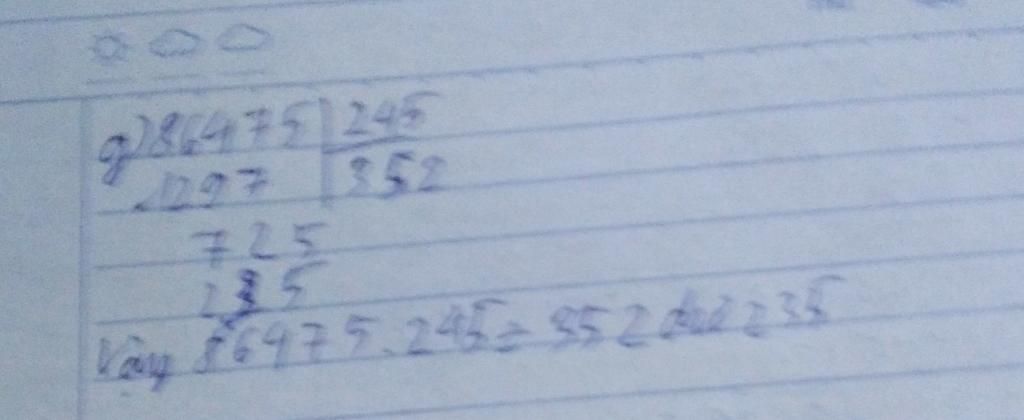 g) 86475 | 245
1297 | 352
725
235
Vậy 86475 : 245 = 352 dư 235